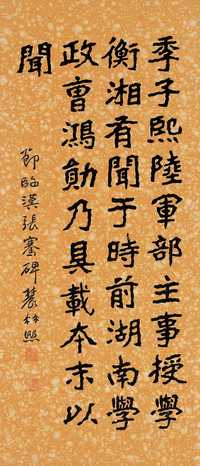 季子熙陸軍部主事授學
衡湘有聞于時前湖南學
政曹鴻勛乃具載本末以
聞
節臨漢張騫碑